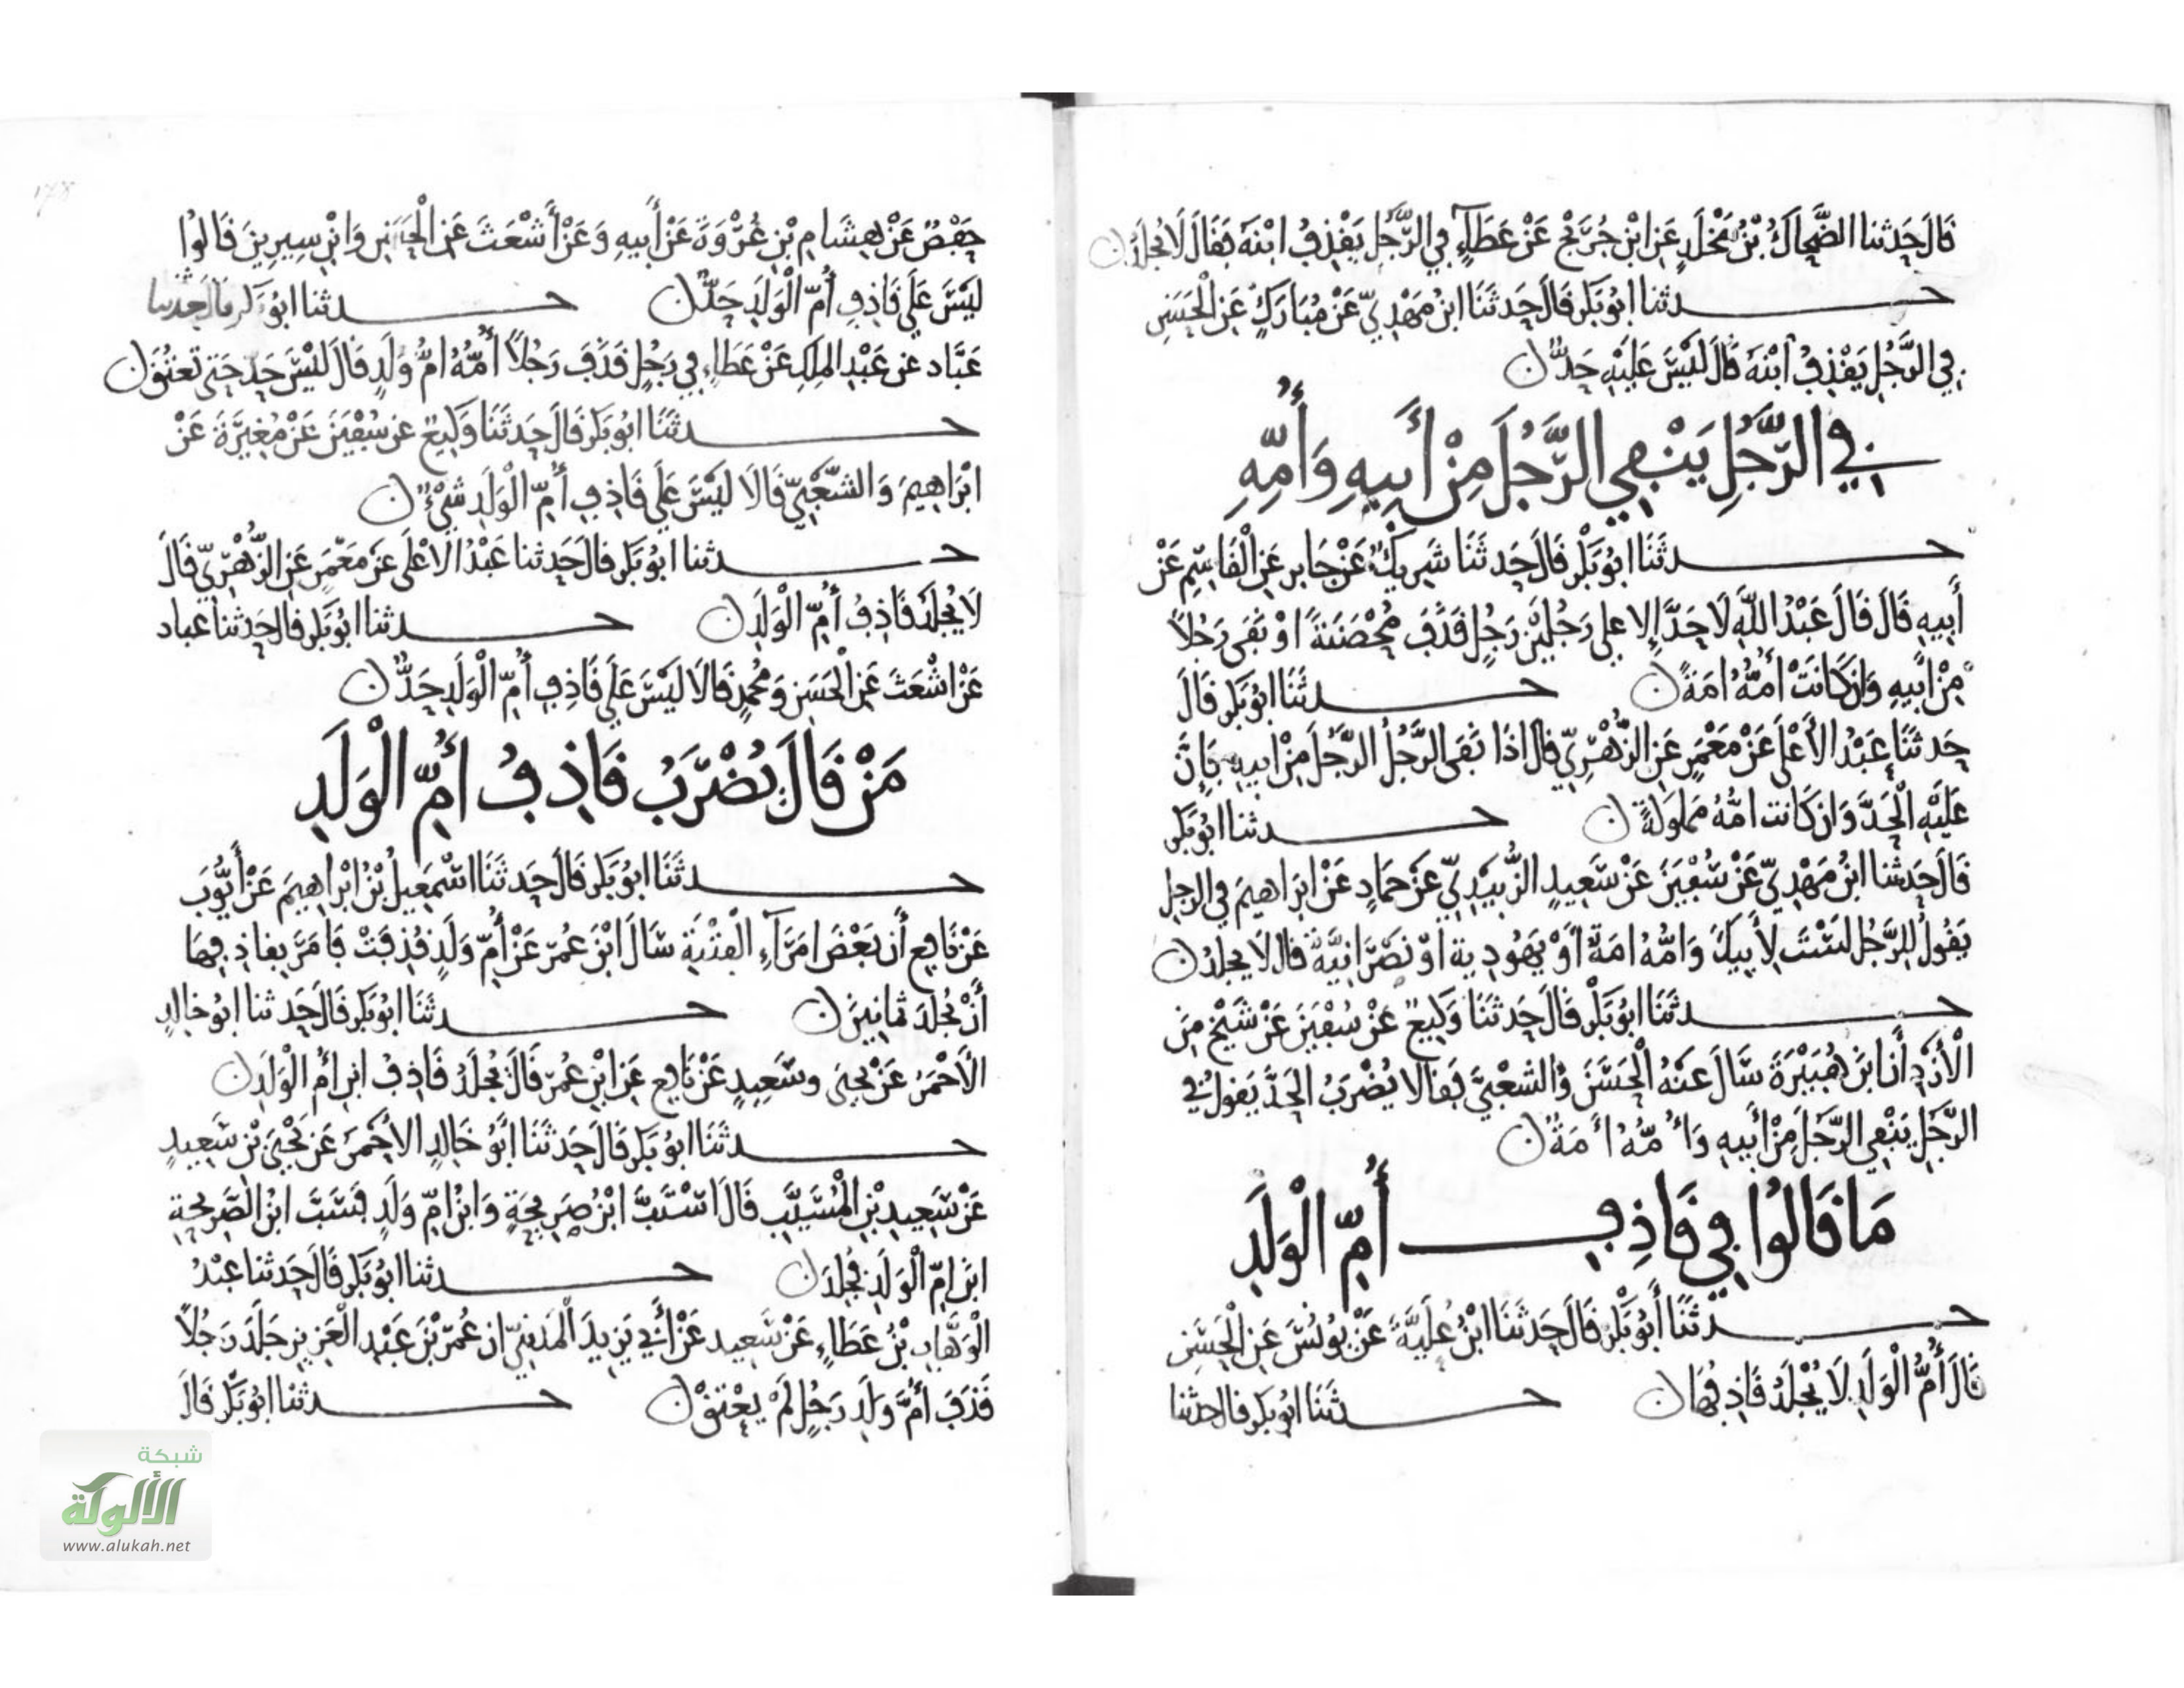 قَالَ حَدثنا الضَّحاكُ بْنُ مَخْلَدٍ عَنِ ابْنِ جُرَيْجٍ عَنْ عَطَآءٍ فِي الرَّجُلِ يَقْذِفُ ابْنَهُ فَقَالَ لَا يُجْلَدُ ن
حـدثنا ابُو بَكر قَالَ حَدثَنَا ابنُ مَهْدِيّ عَنْ مُبَارَكٍ عَنِ الْحَسَنِ
فِي الرَّجُلِ يَقْذِفُ ابْنَهُ قَالَ لَيْسَ عَلَيْهِ حَدٌّ ن
في الرَّجُلِ يَنْفِي الرَّجُلَ مِنْ أَبِيهِ وَأُمِّهِ
حـدثَنَا ابُو بَكْر قَالَ حَدثَنَا شَرِيكٌ عَنْ جَابِر عَنِ الْقَاسِمِ عَنْ
أَبِيهِ قَالَ قَالَ عَبْدُ اللَّهِ لَا حَدَّ إلا على رَجُلَيْنِ رَجُلٍ قَذَفَ مُحْصَنَةً اوْ نَفَى رَجُلاً
مِنْ أَبِيهِ وَإن كَانَتْ أُمُّهُ امَةً ن حـدثَنَا ابُو بَكر قَالَ
حَدثَنَا عَبْدُ الأَعْلَى عَنْ مَعْمَرٍ عَنِ الزُّهْرِيّ قال اذَا نَفَى الرَّجُلُ الرَّجُلَ مِنْ ابيهِ فَإنَّ
عَلَيْهِ الْحَدَّ وَان كَانت امُّهُ مملوكةً ن حـدثنا ابُو بَكر
قَالَ حَدثنا ابنُ مَهْدِيّ عَنْ سُفْيَنَ عَنْ سَعِيدٍ الزُّبَيْدِيّ عَنْ حَمادٍ عَنْ ابرَاهيمَ في الرجل
يَقُولُ لِلرَّجُلِ لَسْتَ لِأَبِيكَ وَامُّهُ امَةٌ اوْ يَهُودِية اوْ نَصْرَانِيَّةٌ قال لا يجلدُ ن
حـدثَنَا ابُو بَكْر قَالَ حَدثَنَا وَكِيعٌ عَنْ سُفْيَنَ عَنْ شَيْخٍ مِنَ
الْأَزْدِ أَنَّ ابنَ هُبَيْرَةَ سَأَلَ عَنْهُ الْحَسَنَ وَالشعْبيَّ فَقَالا يُضْرَبُ الْحَدَّ يَقولُ في
الرَّجُلِ يَنْفِي الرَّجُلَ مِنْ أَبِيهِ وَأُمُّهُ أَمَةٌ ن
مَا قَالُوا فِي قَاذِفِ أُمِّ الْوَلَدِ
حـدثَنَا أَبُو بَكْر قَالَ حَدثَنَا ابْنُ عُلَيَّةَ عَنْ يُونُسَ عَنِ الْحَسَنِ
قَالَ أُمُّ الْوَلَدِ لَا يُجْلَدُ قَاذِفُهَا ن حـدثَنَا ابُو بَكر قال حدثنا
حَفْصٌ عَنْ هِشَامِ بْنِ عُرْوَةَ عَنْ أَبِيهِ وَعَنْ أَشْعَثَ عَنِ الْحَسَنِ وَابْنِ سِيرِينَ قَالُوا
لَيْسَ عَلَى قَاذِفِ أُمِّ الْوَلَدِ حَدٌّ ن حـدثنا ابُو بَكر قال حدثنا
عَبَّاد عن عَبْدِ الملِكِ عَنْ عَطَاءٍ فِي رَجُلٍ قَذَفَ رَجُلاً أُمُّهُ امُّ وَلَدٍ قَالَ لَيْسَ حَد حَتى تعتُقَ ن
حـدثَنَا ابُو بَكر قَالَ حَدثَنَا وَكِيعٌ عن سُفْيَنَ عَنْ مُغِيرَةَ عَنْ
ابْرَاهِيمَ وَالشَّعْبِيِّ قَالَا لَيْسَ عَلَى قَاذِفِ أُمِّ الْوَلَدِ شَيْءٌ ن
حـدثنا ابُو بَكر قال حَدثنا عَبْدُ الأعْلَى عَنْ مَعْمَرٍ عَنِ الزُّهْرِيّ قَالَ
لَا يُجْلَدُ قَاذِفُ أُمِّ الْوَلَدِ ن حـدثنا ابُو بَكر قال حَدثنا عباد
عَنْ اشْعَثَ عَنِ الْحَسَنِ وَمُحَمدٍ قَالَا لَيْسَ عَلَى قَاذِفِ أُمِّ الْوَلَدِ حَدٌّ ن
مَنْ قَالَ يُضْرَبُ قَاذِفُ أُمِّ الْوَلَدِ
حـدثَنَا ابُو بَكر قَالَ حَدثَنَا اسْمَعِيلُ بْنُ ابْرَاهِيمَ عَنْ أَيُّوبَ
عَنْ نَافِعٍ أَن بَعْضَ امَرَآءِ الْفِتْنَةِ سَالَ ابْنَ عُمَرَ عَنْ أُمِّ وَلَدٍ قُذِفَتْ فَامَرَ بِقَاذِفِهَا
أَنْ يُجْلَدَ ثمانِينَ ن حـدثَنَا ابُو بَكر قَالَ حَدثنا ابُو خالدٍ
الأَحْمَرُ عَنْ يَحيى وسَعِيدٍ عَنْ نَافِعٍ عَنِ ابْنِ عُمَرَ قَالَ يُجْلَدُ قَاذِفُ ابن أُم الْوَلَدِ ن
حـدثَنَا ابُو بَكر قَالَ حَدثَنَا ابُو خَالِدٍ الاحْمَرُ عَنْ يَحْيَى بْنِ سَعِيدٍ
عَنْ سَعِيدِ بْنِ الْمُسَيَّبِ قَالَ اسْتَبَّ ابْنُ صَرِيحَةٍ وَابْنُ امِّ وَلَدٍ فَسَبَّ ابْنُ الصَّرِيحةِ
ابنَ امِّ الْوَلَدِ فجُلِدَ ن حـدثنا ابُو بَكر قَالَ حَدثنا عَبْدُ
الْوَهَّابِ بْنُ عَطَاءٍ عَنْ سَعِيدٍ عَنْ أَبِي يَزِيدَ الْمَدَنِيّ ان عُمَرَ بْنَ عَبْدِ الْعَزِيزِ جَلَدَ رَجُلاً
قَذَفَ أُمَّ وَلَدِ رَجُلٍ لَمْ يُعْتَقْ ن حـدثنا ابُو بَكر قَالَ
شبكة
الألوكة
www.alukah.net